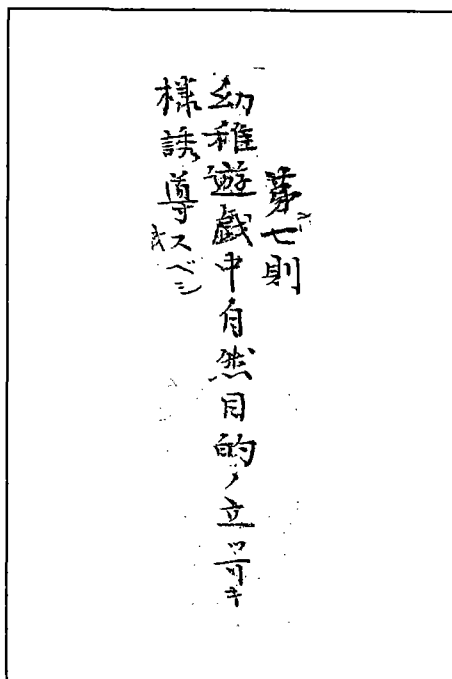 第七則
六
幼稚遊戯中自然目的ノ立ツ可キ
様誘導スベシ